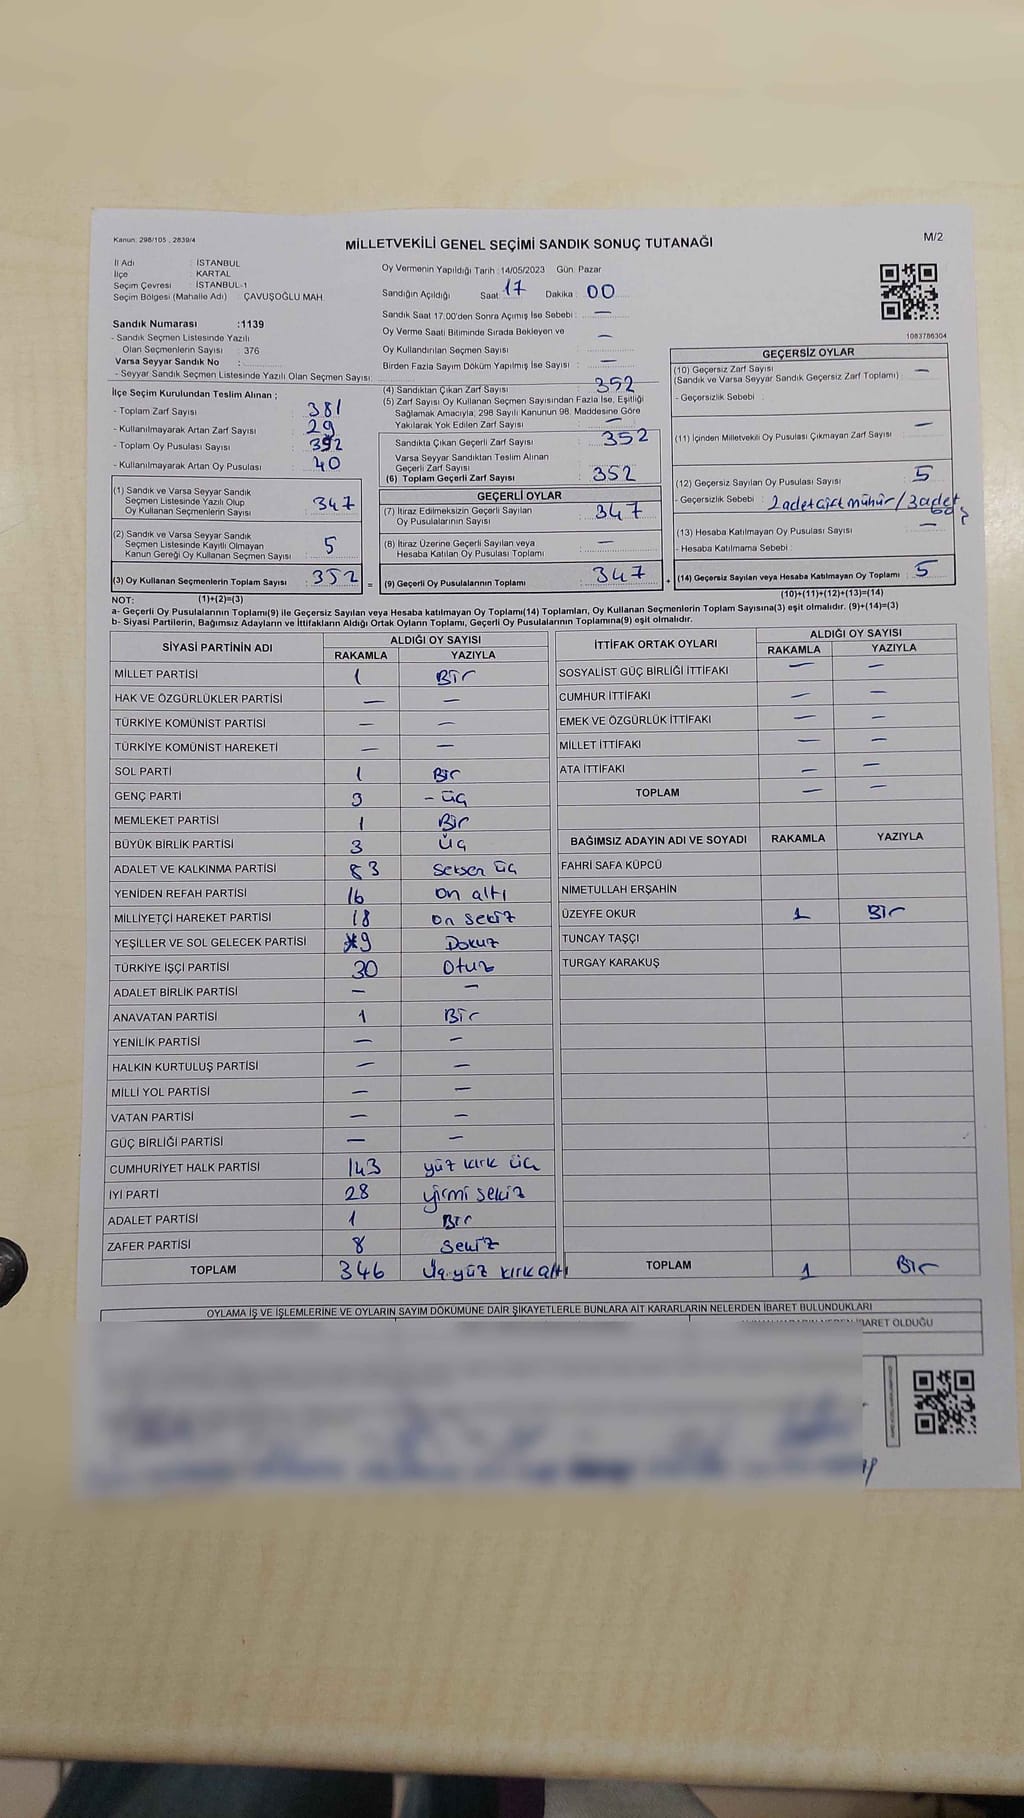 Kanun: 298/105 , 2839/4
MİLLETVEKİLİ GENEL SEÇİMİ SANDIK SONUÇ TUTANAĞI
M/2
İl Adı : İSTANBUL
İlçe : KARTAL
Seçim Çevresi : İSTANBUL-1
Seçim Bölgesi (Mahalle Adı) : ÇAVUŞOĞLU MAH.
Sandık Numarası :1139
- Sandık Seçmen Listesinde Yazılı
Olan Seçmenlerin Sayısı : 376
Varsa Seyyar Sandık No :
- Seyyar Sandık Seçmen Listesinde Yazılı Olan Seçmen Sayısı:
Oy Vermenin Yapıldığı Tarih : 14/05/2023 Gün: Pazar
Sandığın Açıldığı Saat : 17 Dakika : 00
Sandık Saat 17:00'den Sonra Açılmış İse Sebebi : —
Oy Verme Saati Bitiminde Sırada Bekleyen ve
Oy Kullandırılan Seçmen Sayısı : —
Birden Fazla Sayım Döküm Yapılmış İse Sayısı : —
1083786304
İlçe Seçim Kurulundan Teslim Alınan ;
- Toplam Zarf Sayısı : 381
- Kullanılmayarak Artan Zarf Sayısı : 29
- Toplam Oy Pusulası Sayısı : 392
- Kullanılmayarak Artan Oy Pusulası : 40
(1) Sandık ve Varsa Seyyar Sandık
Seçmen Listesinde Yazılı Olup
Oy Kullanan Seçmenlerin Sayısı : 347
(2) Sandık ve Varsa Seyyar Sandık
Seçmen Listesinde Kayıtlı Olmayan
Kanun Gereği Oy Kullanan Seçmen Sayısı : 5
(3) Oy Kullanan Seçmenlerin Toplam Sayısı : 352 =
(4) Sandıktan Çıkan Zarf Sayısı : 352
(5) Zarf Sayısı Oy Kullanan Seçmen Sayısından Fazla İse, Eşitliği
Sağlamak Amacıyla, 298 Sayılı Kanunun 98. Maddesine Göre
Yakılarak Yok Edilen Zarf Sayısı : —
Sandıkta Çıkan Geçerli Zarf Sayısı : 352
Varsa Seyyar Sandıktan Teslim Alınan
Geçerli Zarf Sayısı :
(6) Toplam Geçerli Zarf Sayısı : 352
GEÇERLİ OYLAR
(7) İtiraz Edilmeksizin Geçerli Sayılan
Oy Pusulalarının Sayısı : 347
(8) İtiraz Üzerine Geçerli Sayılan veya
Hesaba Katılan Oy Pusulası Toplamı : —
(9) Geçerli Oy Pusulalarının Toplamı : 347 +
GEÇERSİZ OYLAR
(10) Geçersiz Zarf Sayısı
(Sandık ve Varsa Seyyar Sandık Geçersiz Zarf Toplamı) : —
- Geçersizlik Sebebi :
(11) İçinden Milletvekili Oy Pusulası Çıkmayan Zarf Sayısı : —
(12) Geçersiz Sayılan Oy Pusulası Sayısı : 5
- Geçersizlik Sebebi : 2 adet çift mühür / 3 adet
(13) Hesaba Katılmayan Oy Pusulası Sayısı : —
- Hesaba Katılmama Sebebi :
(14) Geçersiz Sayılan veya Hesaba Katılmayan Oy Toplamı : 5
NOT: (1)+(2)=(3)
(10)+(11)+(12)+(13)=(14)
a- Geçerli Oy Pusulalarının Toplamı(9) ile Geçersiz Sayılan veya Hesaba katılmayan Oy Toplamı(14) Toplamları, Oy Kullanan Seçmenlerin Toplam Sayısına(3) eşit olmalıdır. (9)+(14)=(3)
b- Siyasi Partilerin, Bağımsız Adayların ve İttifakların Aldığı Ortak Oyların Toplamı, Geçerli Oy Pusulalarının Toplamına(9) eşit olmalıdır.
SİYASİ PARTİNİN ADI ALDIĞI OY SAYISI
RAKAMLA YAZIYLA
MİLLET PARTİSİ 1 Bir
HAK VE ÖZGÜRLÜKLER PARTİSİ — —
TÜRKİYE KOMÜNİST PARTİSİ — —
TÜRKİYE KOMÜNİST HAREKETİ — —
SOL PARTİ 1 Bir
GENÇ PARTİ 3 - üç
MEMLEKET PARTİSİ 1 Bir
BÜYÜK BİRLİK PARTİSİ 3 Üç
ADALET VE KALKINMA PARTİSİ 83 Seksen üç
YENİDEN REFAH PARTİSİ 16 on altı
MİLLİYETÇİ HAREKET PARTİSİ 18 on sekiz
YEŞİLLER VE SOL GELECEK PARTİSİ 9 Dokuz
TÜRKİYE İŞÇİ PARTİSİ 30 Otuz
ADALET BİRLİK PARTİSİ — —
ANAVATAN PARTİSİ 1 Bir
YENİLİK PARTİSİ — —
HALKIN KURTULUŞ PARTİSİ — —
MİLLİ YOL PARTİSİ — —
VATAN PARTİSİ — —
GÜÇ BİRLİĞİ PARTİSİ — —
CUMHURİYET HALK PARTİSİ 143 yüz kırk üç
İYİ PARTİ 28 yirmi sekiz
ADALET PARTİSİ 1 Bir
ZAFER PARTİSİ 8 Sekiz
TOPLAM 346 Üç yüz kırk altı
İTTİFAK ORTAK OYLARI ALDIĞI OY SAYISI
RAKAMLA YAZIYLA
SOSYALİST GÜÇ BİRLİĞİ İTTİFAKI — —
CUMHUR İTTİFAKI — —
EMEK VE ÖZGÜRLÜK İTTİFAKI — —
MİLLET İTTİFAKI — —
ATA İTTİFAKI — —
TOPLAM — —
BAĞIMSIZ ADAYIN ADI VE SOYADI RAKAMLA YAZIYLA
FAHRİ SAFA KÜPCÜ
NİMETULLAH ERŞAHİN
ÜZEYFE OKUR 1 Bir
TUNCAY TAŞÇI
TURGAY KARAKUŞ
TOPLAM 1 Bir
OYLAMA İŞ VE İŞLEMLERİNE VE OYLARIN SAYIM DÖKÜMÜNE DAİR ŞİKAYETLERLE BUNLARA AİT KARARLARIN NELERDEN İBARET BULUNDUKLARI
İBARET OLDUĞU